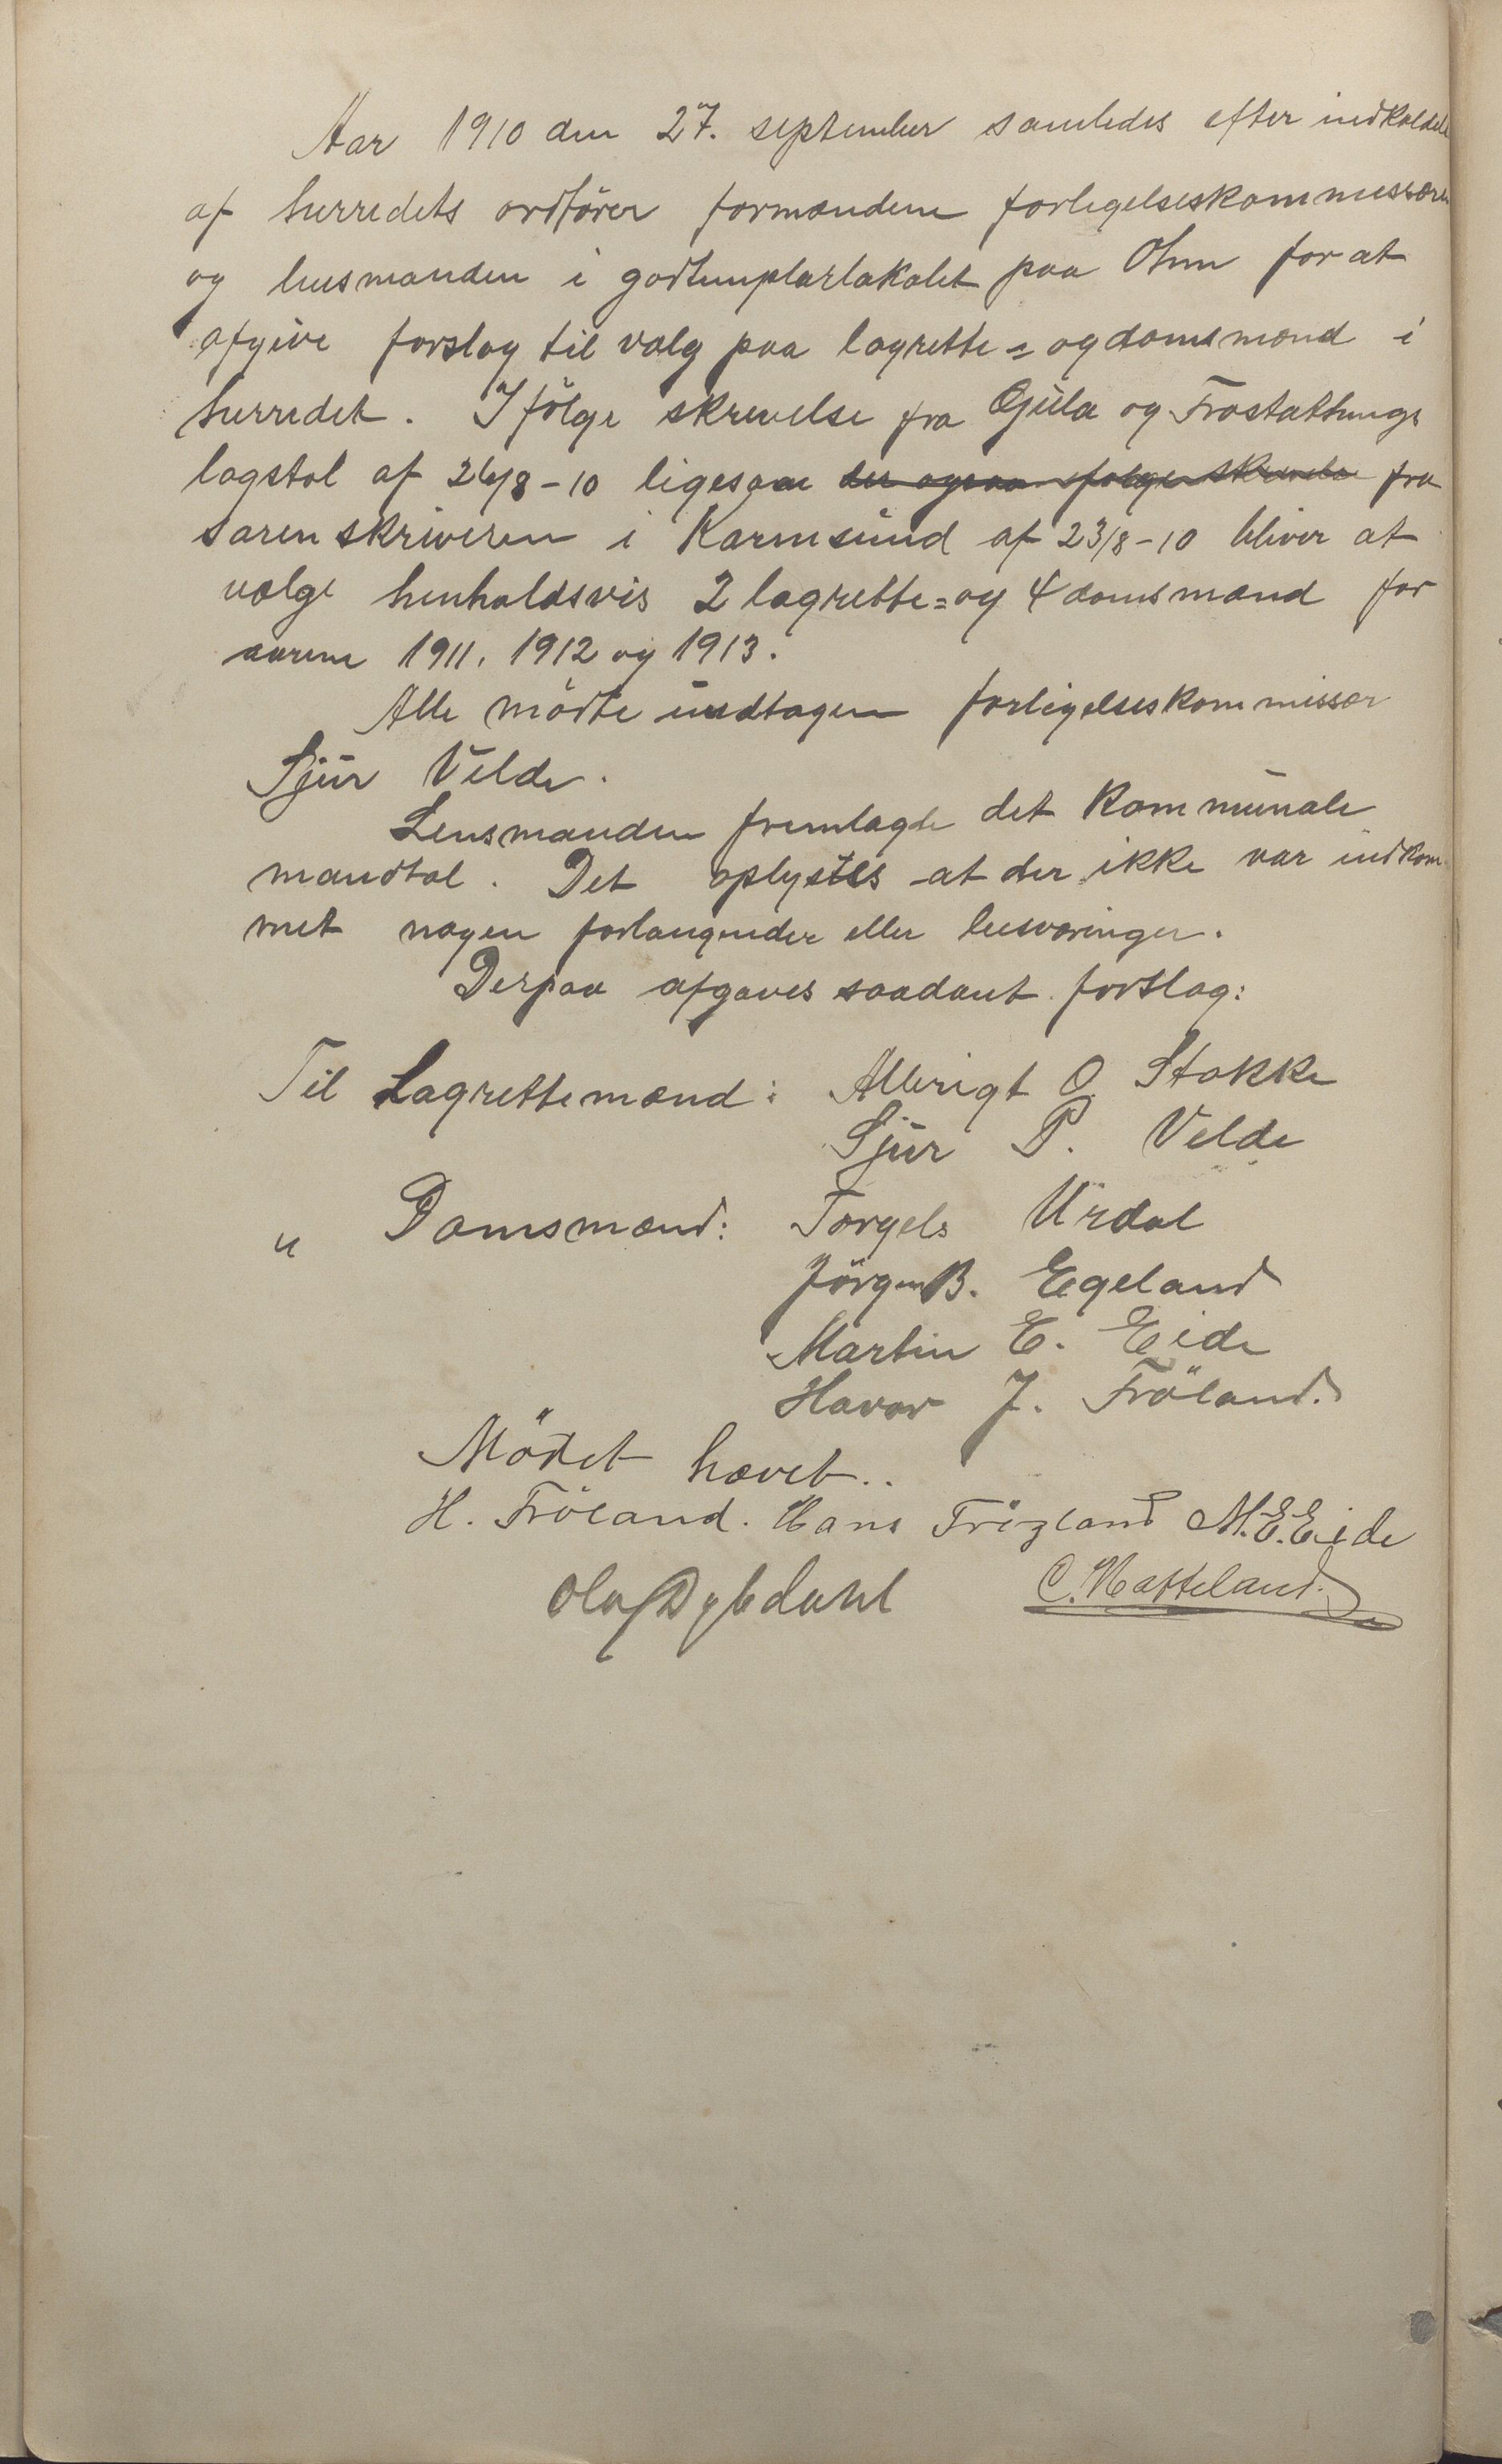 Aar 1910 den 27. september samledes efter indkaldelse
af herredets ordfører formændene forligelseskommissærer
og lensmanden i godtemplarlokalet paa Ølen for at
afgive forslag til valg paa lagrette = og domsmænd i
herredet. Ifølge skrivelse fra Gula og Frostattungs
lagstol af 26/8-10 ligesaa der ogsaa ifølge skrivelse fra
sorenskriveren i Karmsund af 23/8-10 bliver at
vælge henholdsvis 2 lagrette = og 4 domsmænd for
aarene 1911, 1912 og 1913.
Alle mødte undtagen forligelseskommissær
Sjur Velde.
Lensmanden fremlagde det kommunale
mandtal. Det oplystes at der ikke var indkom-
met nogen forlangender eller besværinger.
Derpaa afgaves saadant forslag:
Til Lagrettemænd: Albrigt O. Stokke
Sjur P. Velde
" Domsmænd: Torgels Urdal
Jørgen B. Egeland
Martin E. Eide
Havor J. Frøland.
Mødet hævet..
H. Frøland. Hans M.E. Eide
Olaf Dybdahl C. Hatteland.